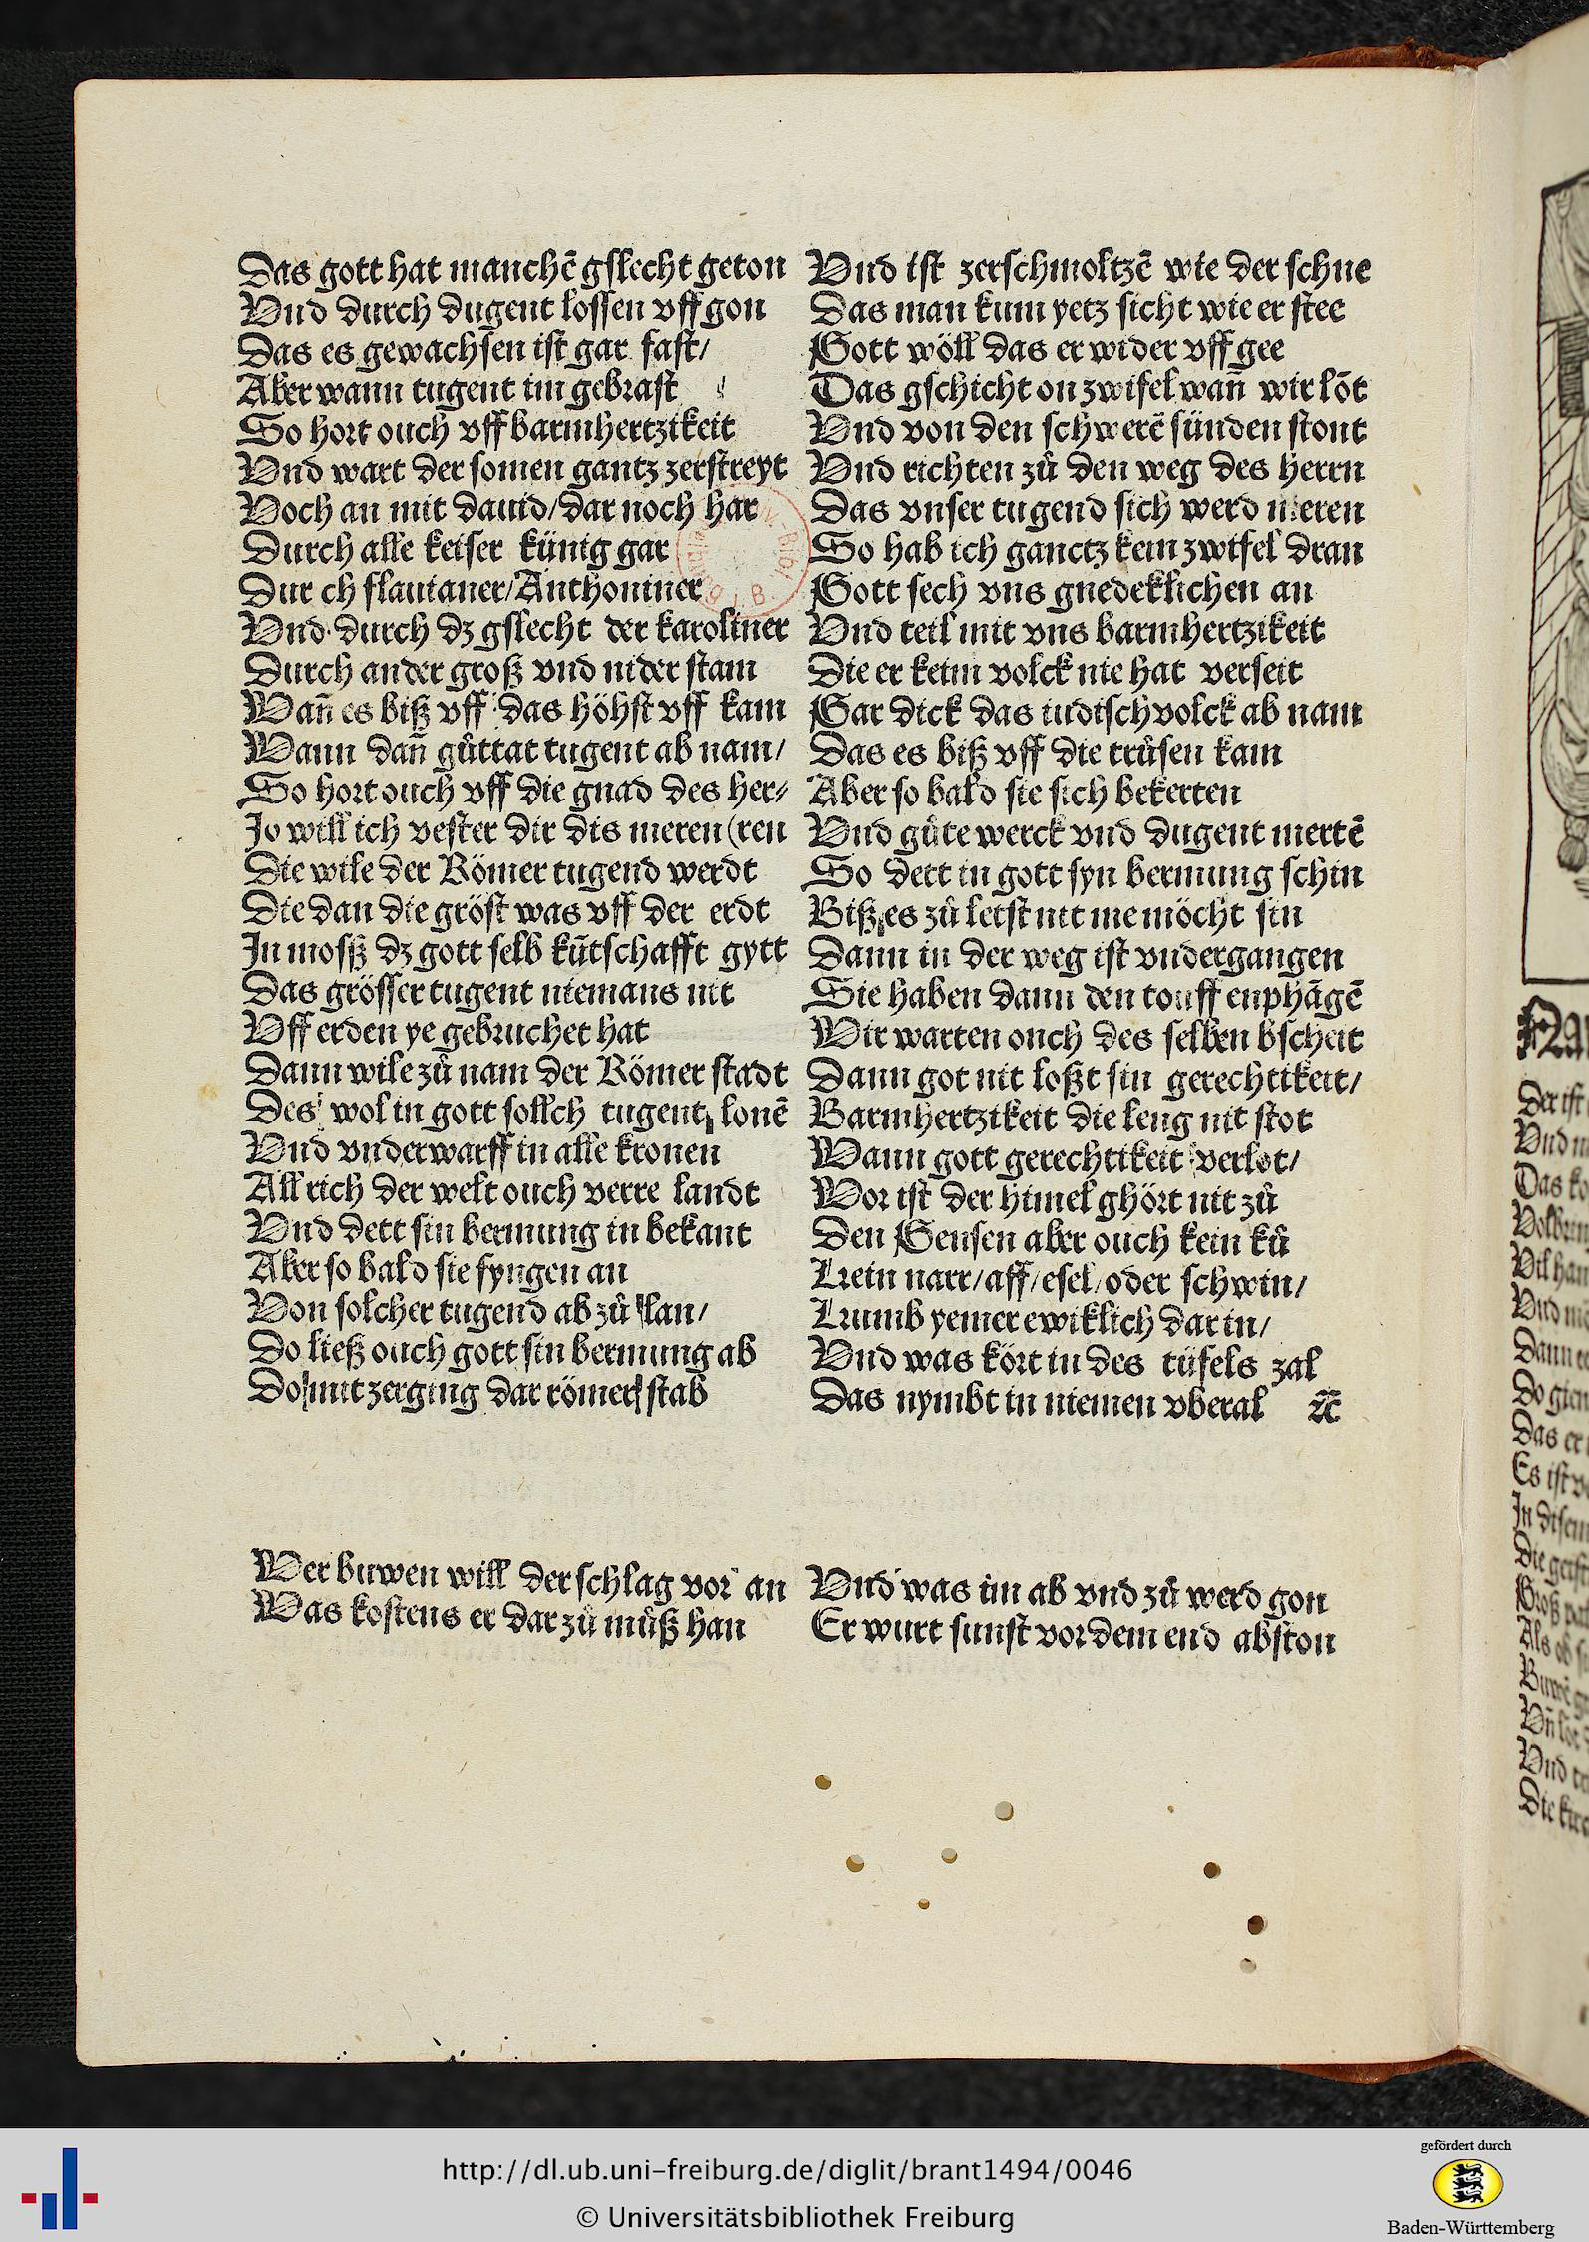 Das gott hat manchē gslecht geton
Vnd durch dugent lossen vff gon
Das es gewachsen ist gar fast/
Aber wann tugent im gebrast
So hort ouch vff barmhertzikeit
Vnd wart der somen gantz zerstreyt
Noch an mit dauid/dar noch har
Durch alle keiser künig gar
Dur ch flauianer/Anthoniner
Vnd durch dz gslecht der karoliner
Durch ander groß vnd nider stam
Wañ es biß vff das höhst vff kam
Wann dañ gůttat tugent ab nam/
So hort ouch vff die gnad des her⸗
Jo will ich vester dir dis meren (ren
Die wile der Römer tugend werdt
Die dan die gröst was vff der erdt
In mosß dz gott selb kūtschafft gytt
Das grösser tugent niemans nit
Vff erden ye gebruchet hat
Dann wile zů nam der Römer stadt
Des wol in gott sollch tugent lonē
Vnd vnderwarff in alle kronen
All rich der welt ouch verre landt
Vnd dett sin bermung in bekant
Aber so bald sie fyngen an
Von solcher tugend ab zů lan/
Do ließ ouch gott sin bermung ab
Do mit zerging dar römer stab
Vnd ist zerschmoltzē wie der schne
Das man kum yetz sicht wie er stee
Gott wöll das er wider vff gee
Das gschicht on zwifel wañ wir lōt
Vnd von den schwerē sünden stont
Vnd richten zů den weg des herrn
Das vnser tugend sich werd meren
So hab ich ganctz kein zwifel dran
Gott sech vns gnedeklichen an
Vnd teil mit vns barmhertzikeit
Die er keim volck nie hat verseit
Gar dick das iudisch volck ab nam
Das es biß vff die trůsen kam
Aber so bald sie sich bekerten
Vnd gůte werck vnd dugent mertē
So dett in gott syn bermung schin
Biß es zů letst nit me möcht sin
Dann in der weg ist vndergangen
Sie haben dann den touff enphāgē
Wir warten ouch des selben bscheit
Dann got nit loßt sin gerechtikeit/
Barmhertzikeit die leng nit stot
Wann gott gerechtikeit verlot/
Vor ist der himel ghört nit zů
Den Gensen aber ouch kein ků
Kein narr/aff/esel/oder schwin/
Kumb yemer ewiklich dar in/
Vnd was kört in des tüfels zal
Das nymbt in niemen vberal ⁊c̄
Wer buwen will der schlag vor an
Was kostens er dar zů můß han
Vnd was im ab vnd zů werd gon
Er wurt sunst vor dem end abston
http://dl.ub.uni-freiburg.de/diglit/brant1494/0046
© Universitätsbibliothek Freiburg
gefördert durch
Baden-Württemberg